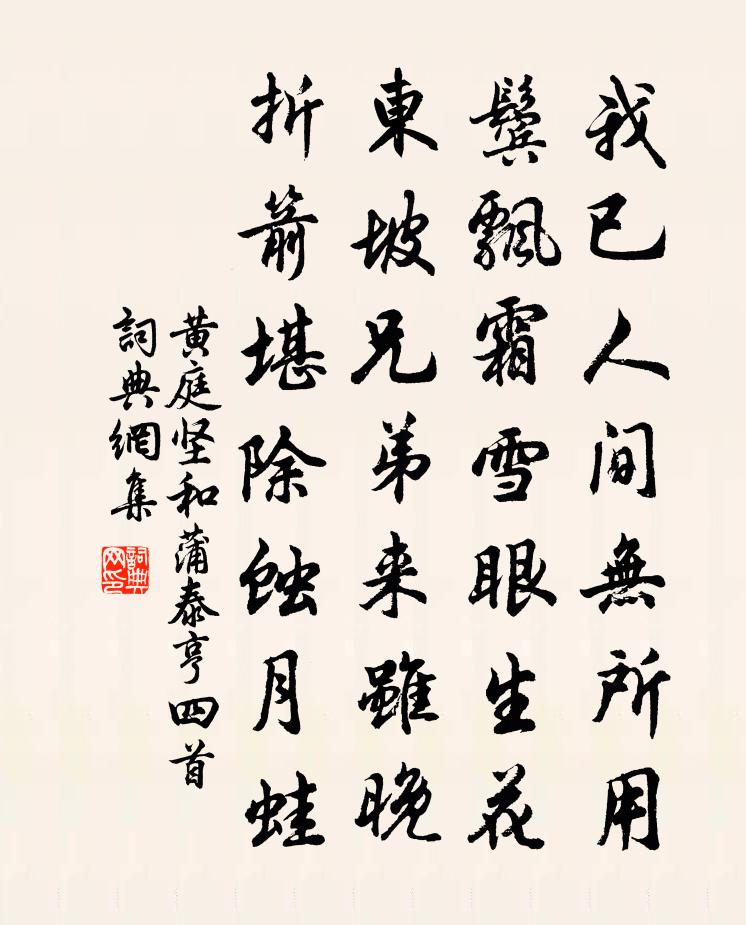 我已人间無所用
鬓飄霜雪眼生花
東坡兄弟来雖晚
折箭堪除蝕月蛙
黄庭坚和蒲泰亨四首
詞典網集
詞典
网印